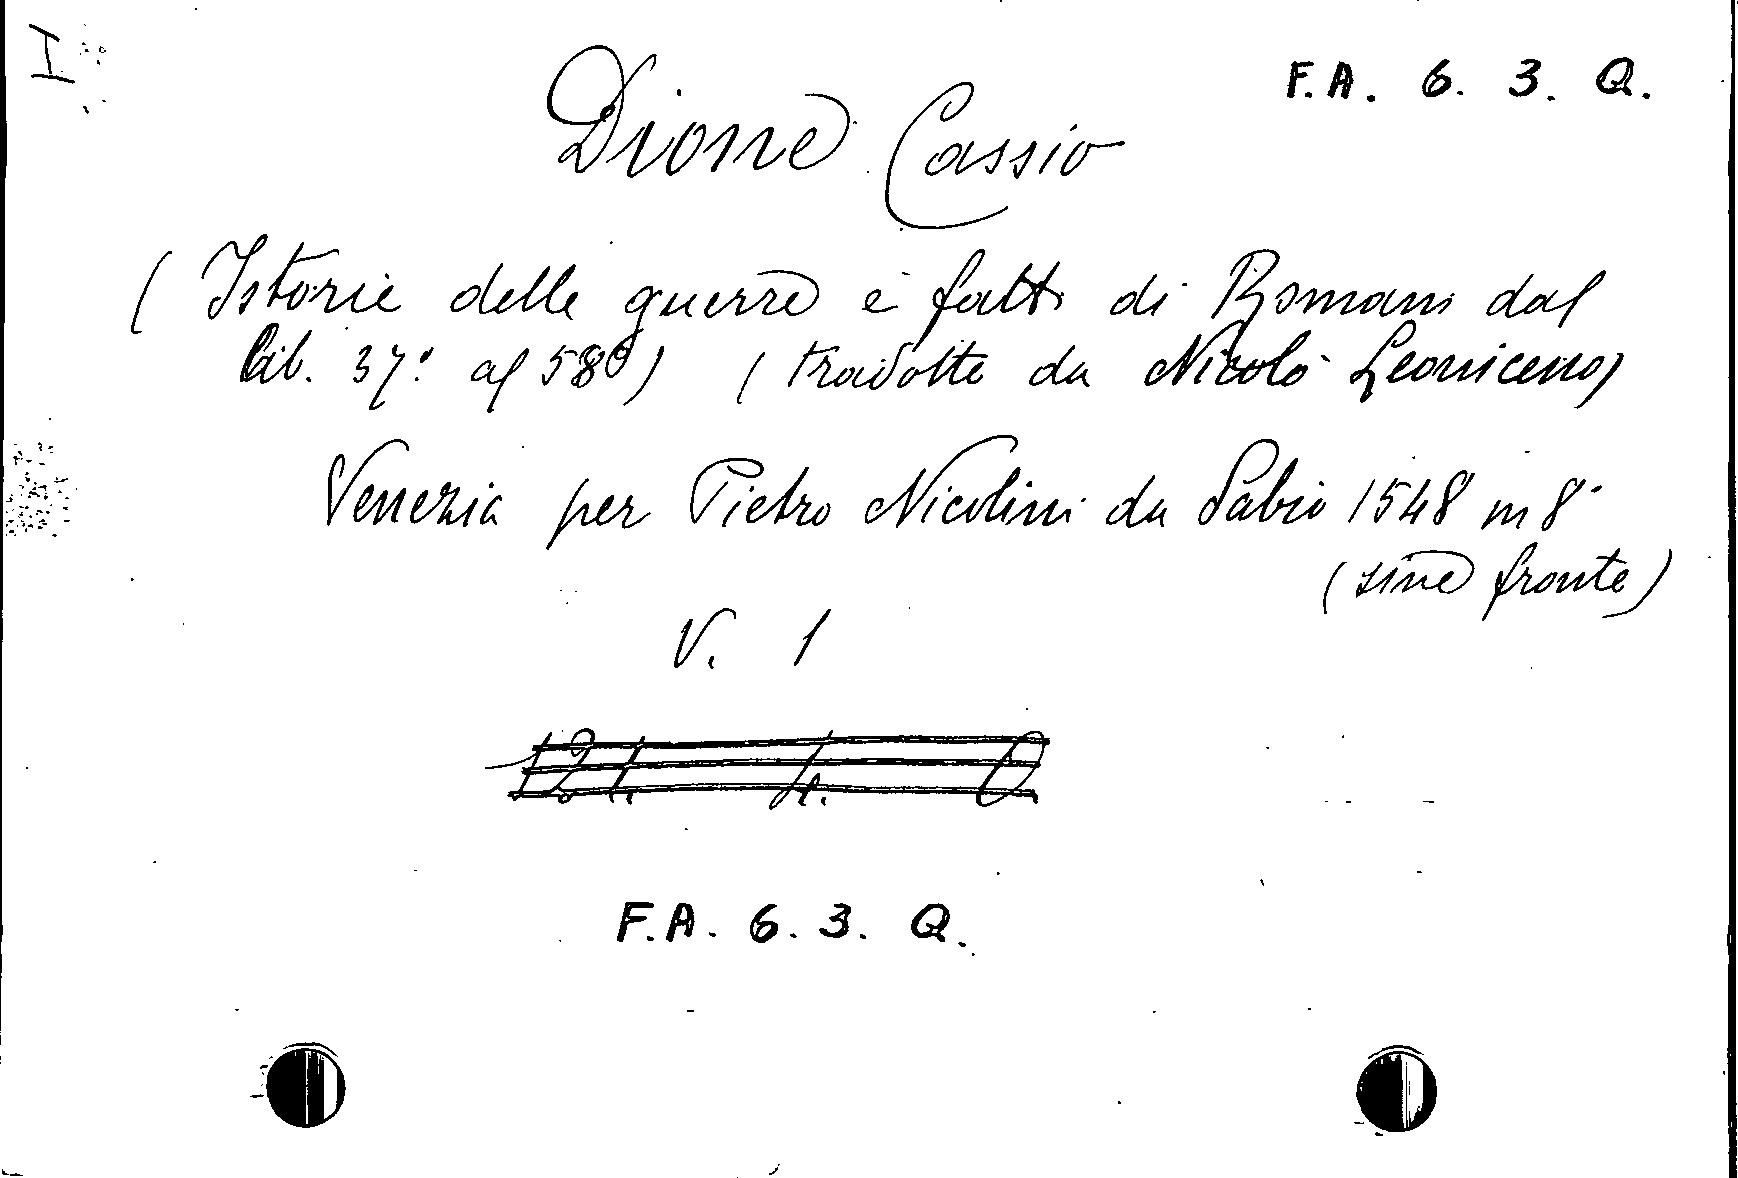 I
F.A. 6. 3. Q.
Dione Cassio
(Istorie delle guerre e fatti di Romani dal
Lib. 37º al 58º) (tradotte da Nicolò Leoniceno)
Venezia per Pietro Nicolini da Sabio 1548 in 8º
(sine fronte)
V. 1
F.A. 6. 3. Q.